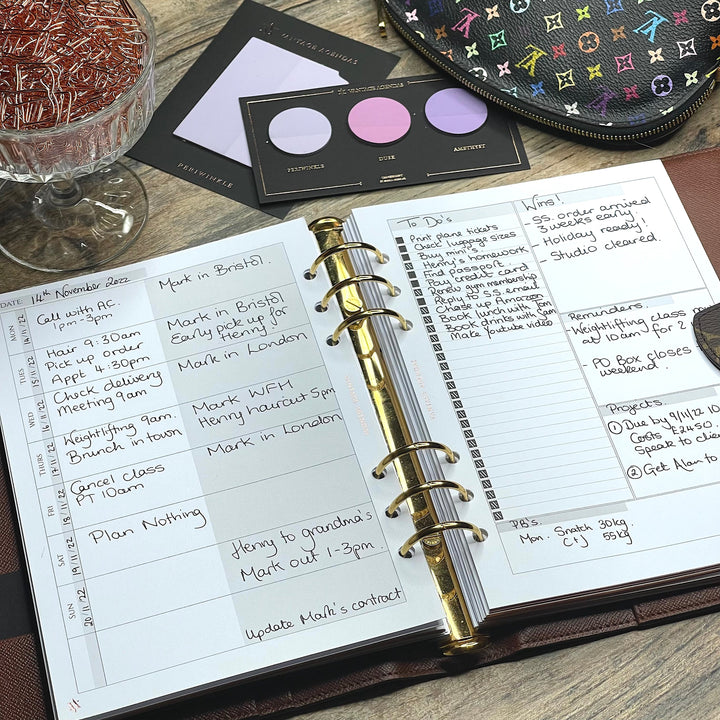 VANTAGE AGENDAS
PERIWINKLE
VANTAGE AGENDAS
PERIWINKLE
DUSK
AMETHYST
DATE: 14th November 2022
MON
Call with AC.
1pm-3pm
Mark in Bristol.
TUES
15/11/22
Hair 9:30am
Pick up order
Appt 4:30pm
Mark in Bristol
Early pick up for
Henry
WED
16/11/22
Check delivery
Meeting 9am
Mark in London
THURS
17/11/22
Weightlifting 9am.
Brunch in town
Mark WFH
Henry haircut 5pm
FRI
18/11/22
Cancel class
PT 10am
Mark in London
SAT
19/11/22
Plan Nothing
Henry to grandma's
Mark out 1-3pm.
SUN
20/11/22
Update Mark's contract
To Do's
Print plane tickets
Check luggage sizes
Buy mini's
Henry's homework
Find passport
Pay credit card
Renew gym membership
Reply to S.S. email
Chase up Amazon
Book lunch with Tom
Book drinks with Sam
Make Youtube video
Wins!
- S.S. order arrived
3 weeks early.
- Holiday ready!
- Studio cleared.
Reminders:
- Weightlifting class
at 10am for 2
- PO Box closes
weekend.
Projects.
① Due by 9/11/22 10
Costs £2450.
Speak to
② Get Alan to
PB's.
Mon. Snatch 30kg.
C+J 55kg